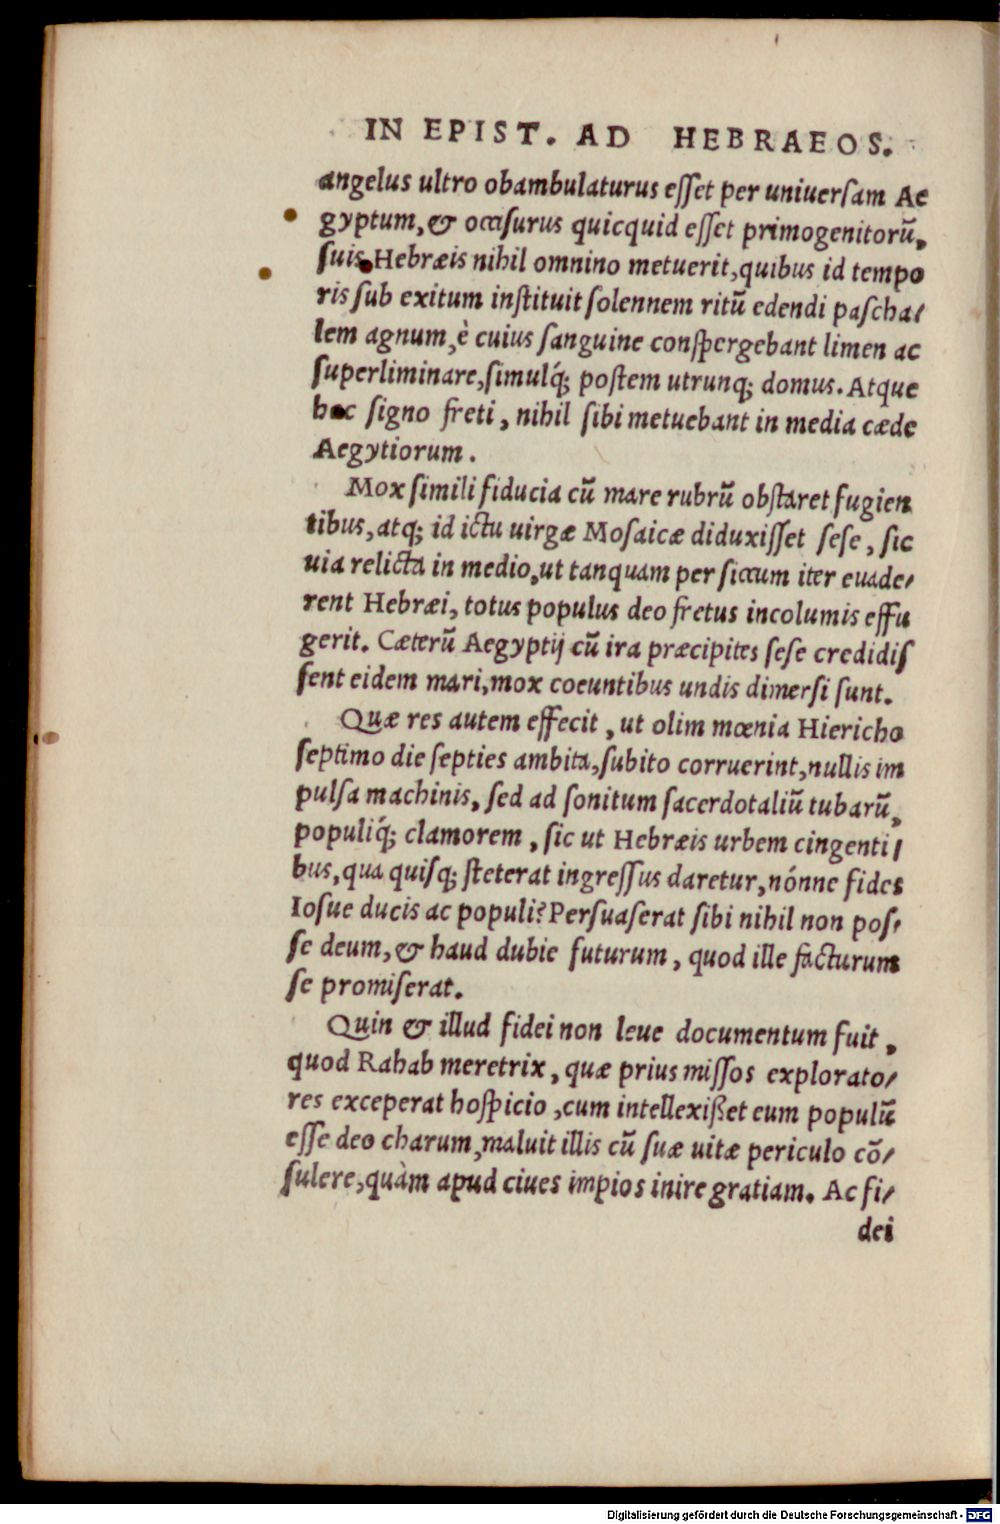 IN EPIST. AD HEBRAEOS.
angelus ultro obambulaturus eſſet per uniuerſam Ae
gyptum, & occiſurus quicquid eſſet primogenitorū,
ſuis Hebræis nihil omnino metuerit, quibus id tempo
ris ſub exitum inſtituit ſolennem ritū edendi paſcha/
lem agnum, è cuius ſanguine conſpergebant limen ac
ſuperliminare, ſimulq́; poſtem utrunq; domus. Atque
hoc ſigno freti, nihil ſibi metuebant in media cæde
Aegytiorum.
Mox ſimili fiducia cū mare rubrū obſtaret fugien
tibus, atq; id ictu uirgæ Moſaicæ diduxiſſet ſeſe, ſic
uia relicta in medio, ut tanquam per ſiccum iter euade/
rent Hebræi, totus populus deo fretus incolumis effu
gerit. Cæterū Aegyptij cū ira præcipites ſeſe credidiſ
ſent eidem mari, mox coeuntibus undis dimerſi sunt.
Quæ res autem effecit, ut olim mœnia Hiericho
ſeptimo die ſepties ambita, ſubito corruerint, nullis im
pulſa machinis, ſed ad ſonitum ſacerdotaliū tubarū,
populiq́; clamorem, ſic ut Hebræis urbem cingenti/
bus, qua quiſq; ſteterat ingreſſus daretur, nónne fides
Ioſue ducis ac populi? Perſuaſerat ſibi nihil non poſ/
ſe deum, & haud dubie futurum, quod ille facturum
ſe promiſerat.
Quin & illud fidei non leue documentum fuit,
quod Rahab meretrix, quæ prius miſſos explorato/
res exceperat hoſpicio, cum intellexißet eum populū
eſſe deo charum, maluit illis cū ſuæ uitæ periculo cō/
ſulere, quàm apud ciues impios inire gratiam. Ac fi/
dei
Digitalisierung gefördert durch die Deutsche Forschungsgemeinschaft - DFG